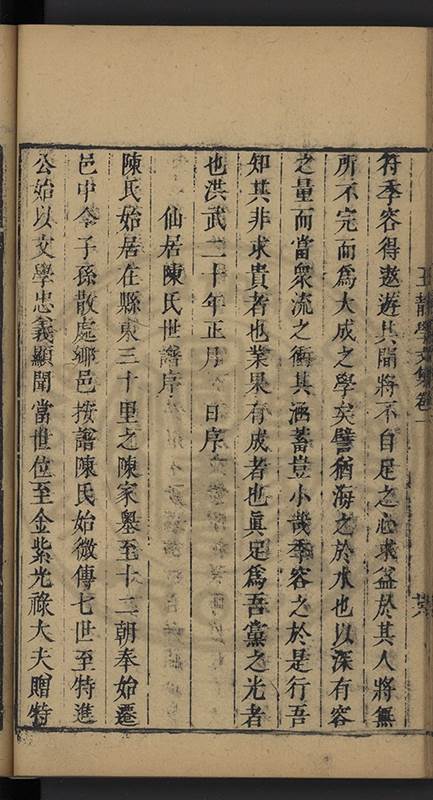 王靜學文集卷一
廿六
符季容得遨遊其間將不自足之心求益於其人將無
所不完而爲大成之學矣譬猶海之於水也以深有容
之量而當衆流之衝其涵蓄豈小哉季容之於是行吾
知其非求貴者也業果有成者也眞足爲吾黨之光者
也洪武二十年正月　日序
仙居陳氏世譜序
陳氏始居在縣東三十里之陳家嶴至十二朝奉始遷
邑中令子孫散處鄉邑按譜陳氏始微傳七世至特進
公始以文學忠義顯聞當世位至金紫光祿大夫贈特